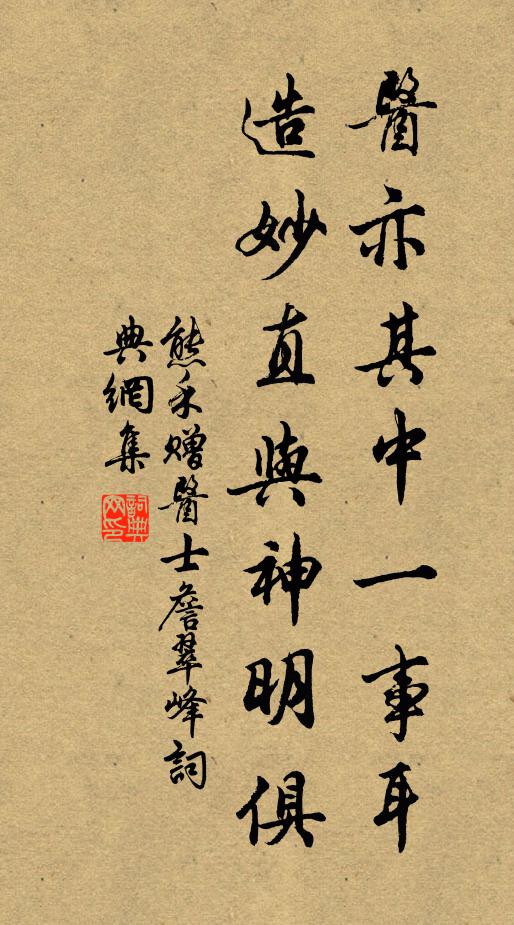 醫亦其中一事耳
造妙直與神明俱
熊禾贈醫士詹翠峰詞
典網集
詞典網印